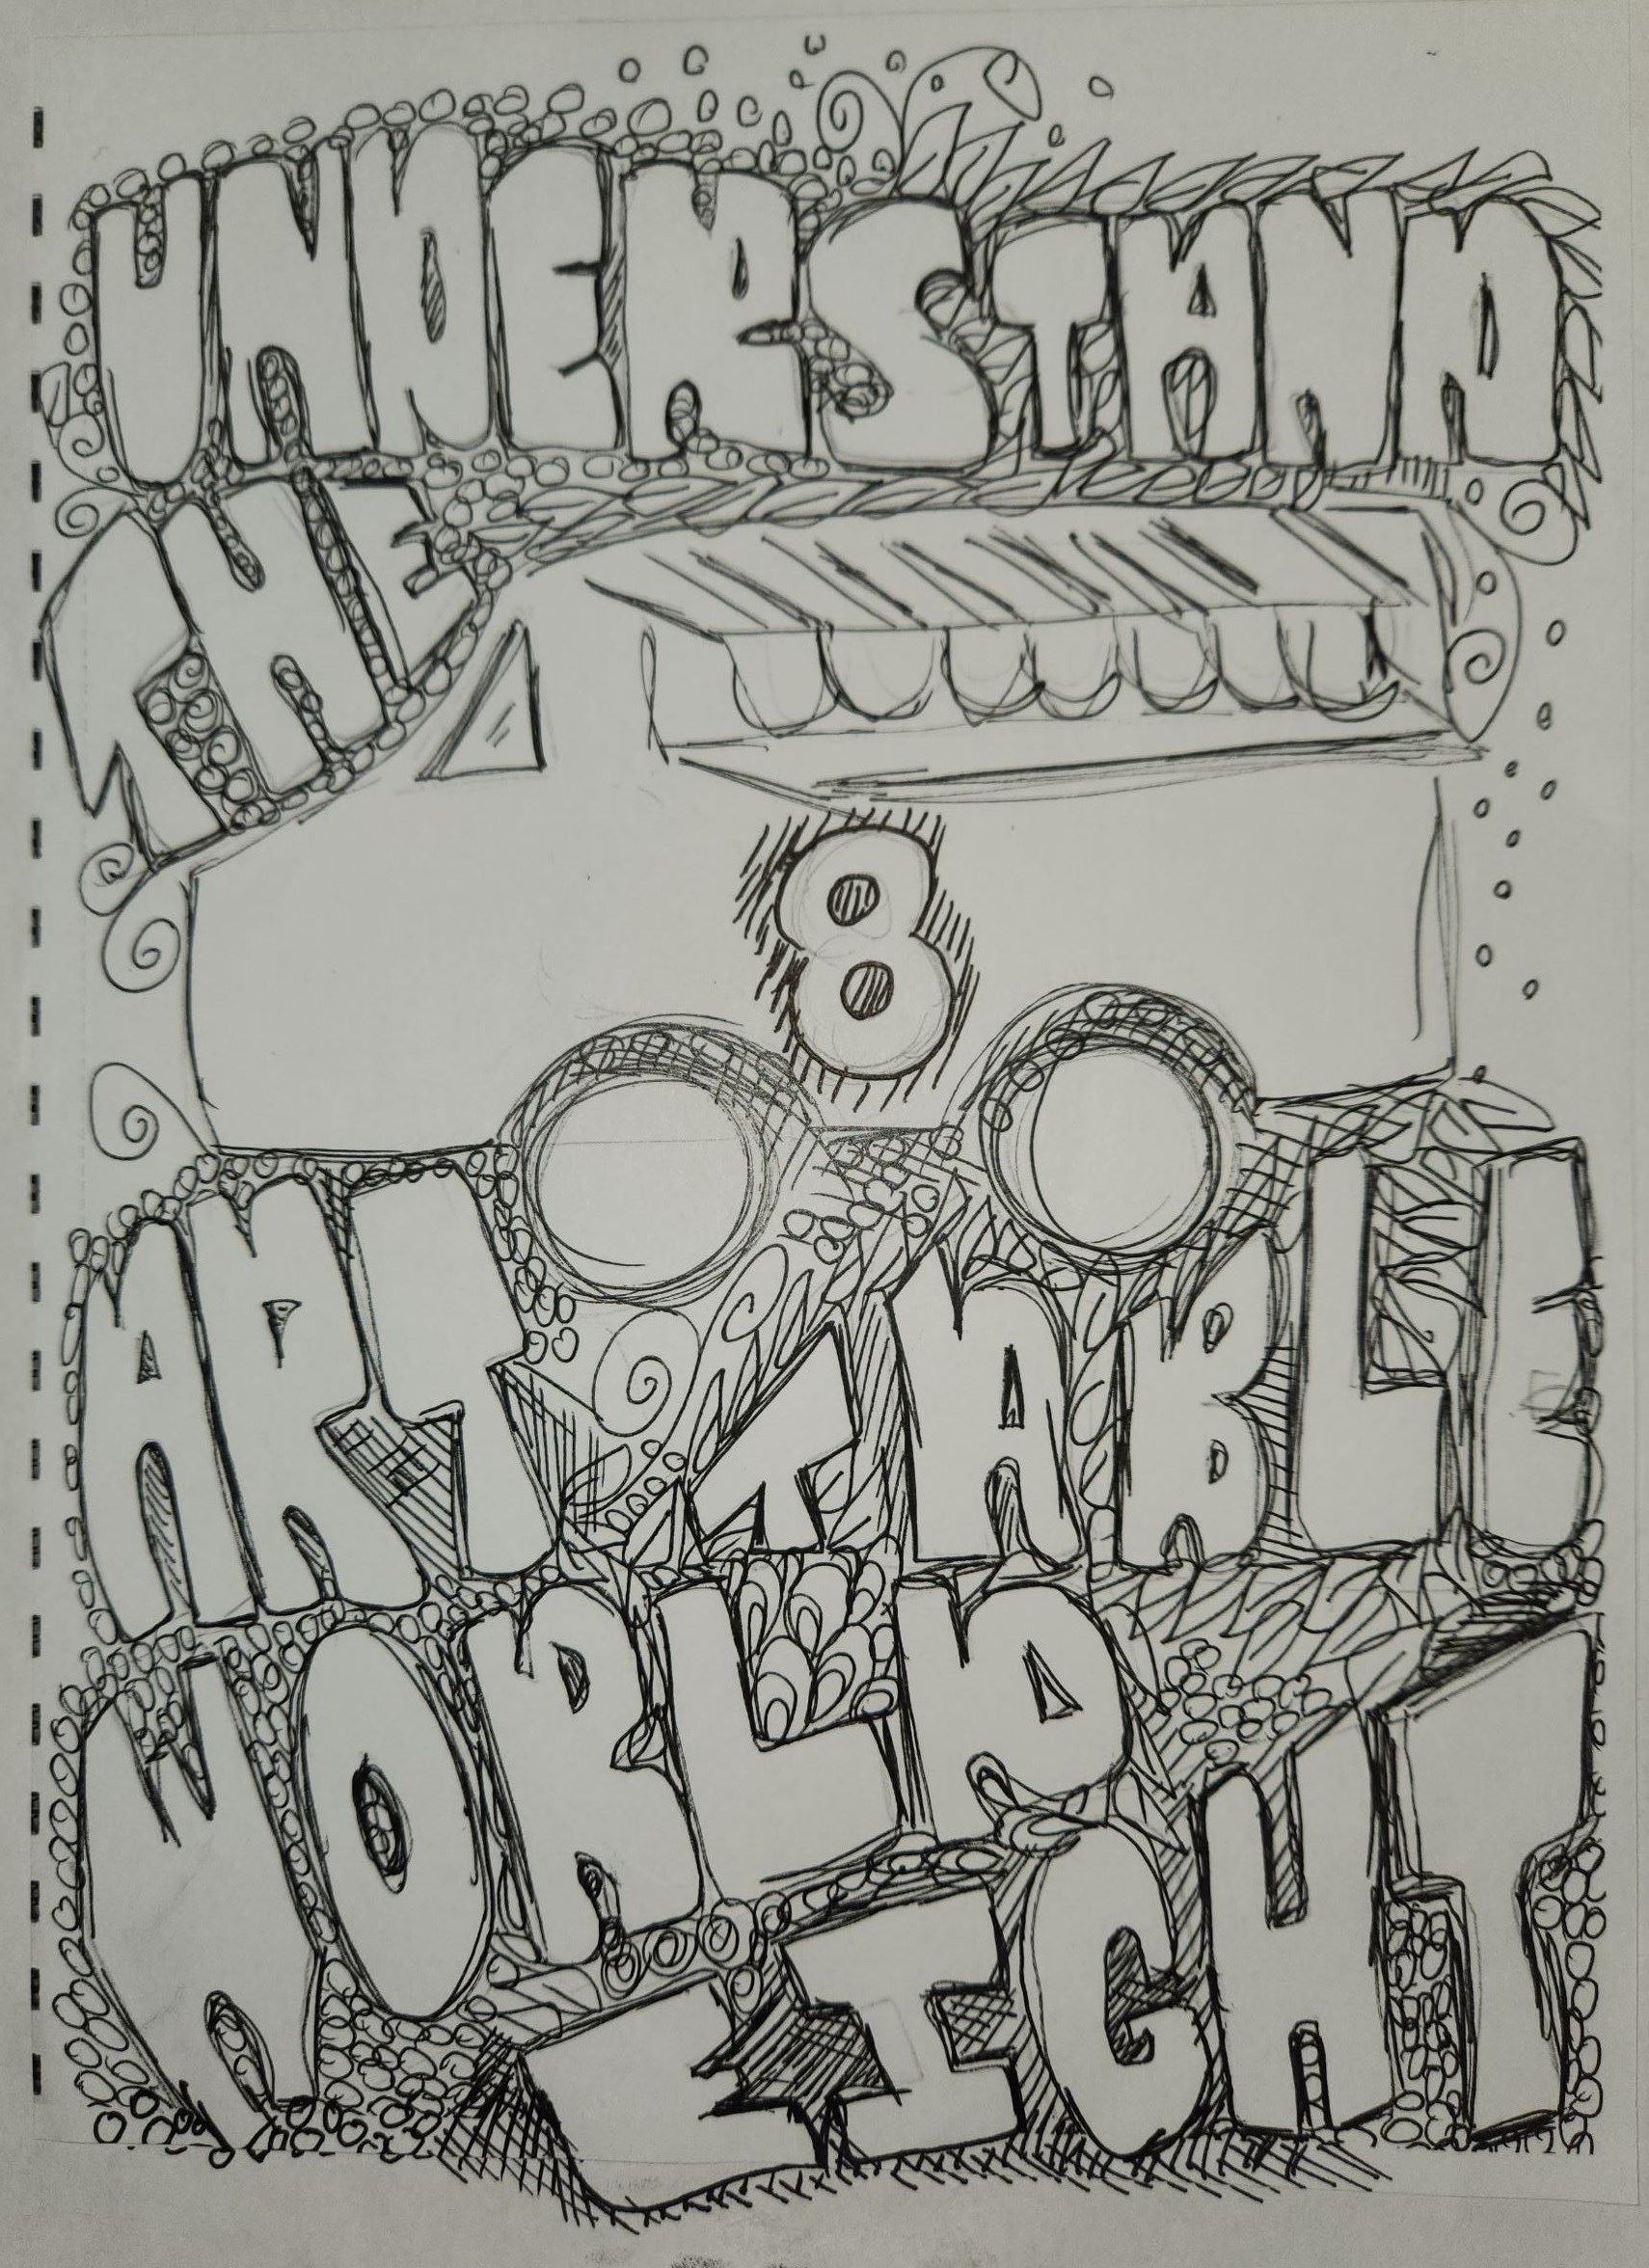 UNDERSTAND
THE
8
ART TABLE
WORLD
EIGHT